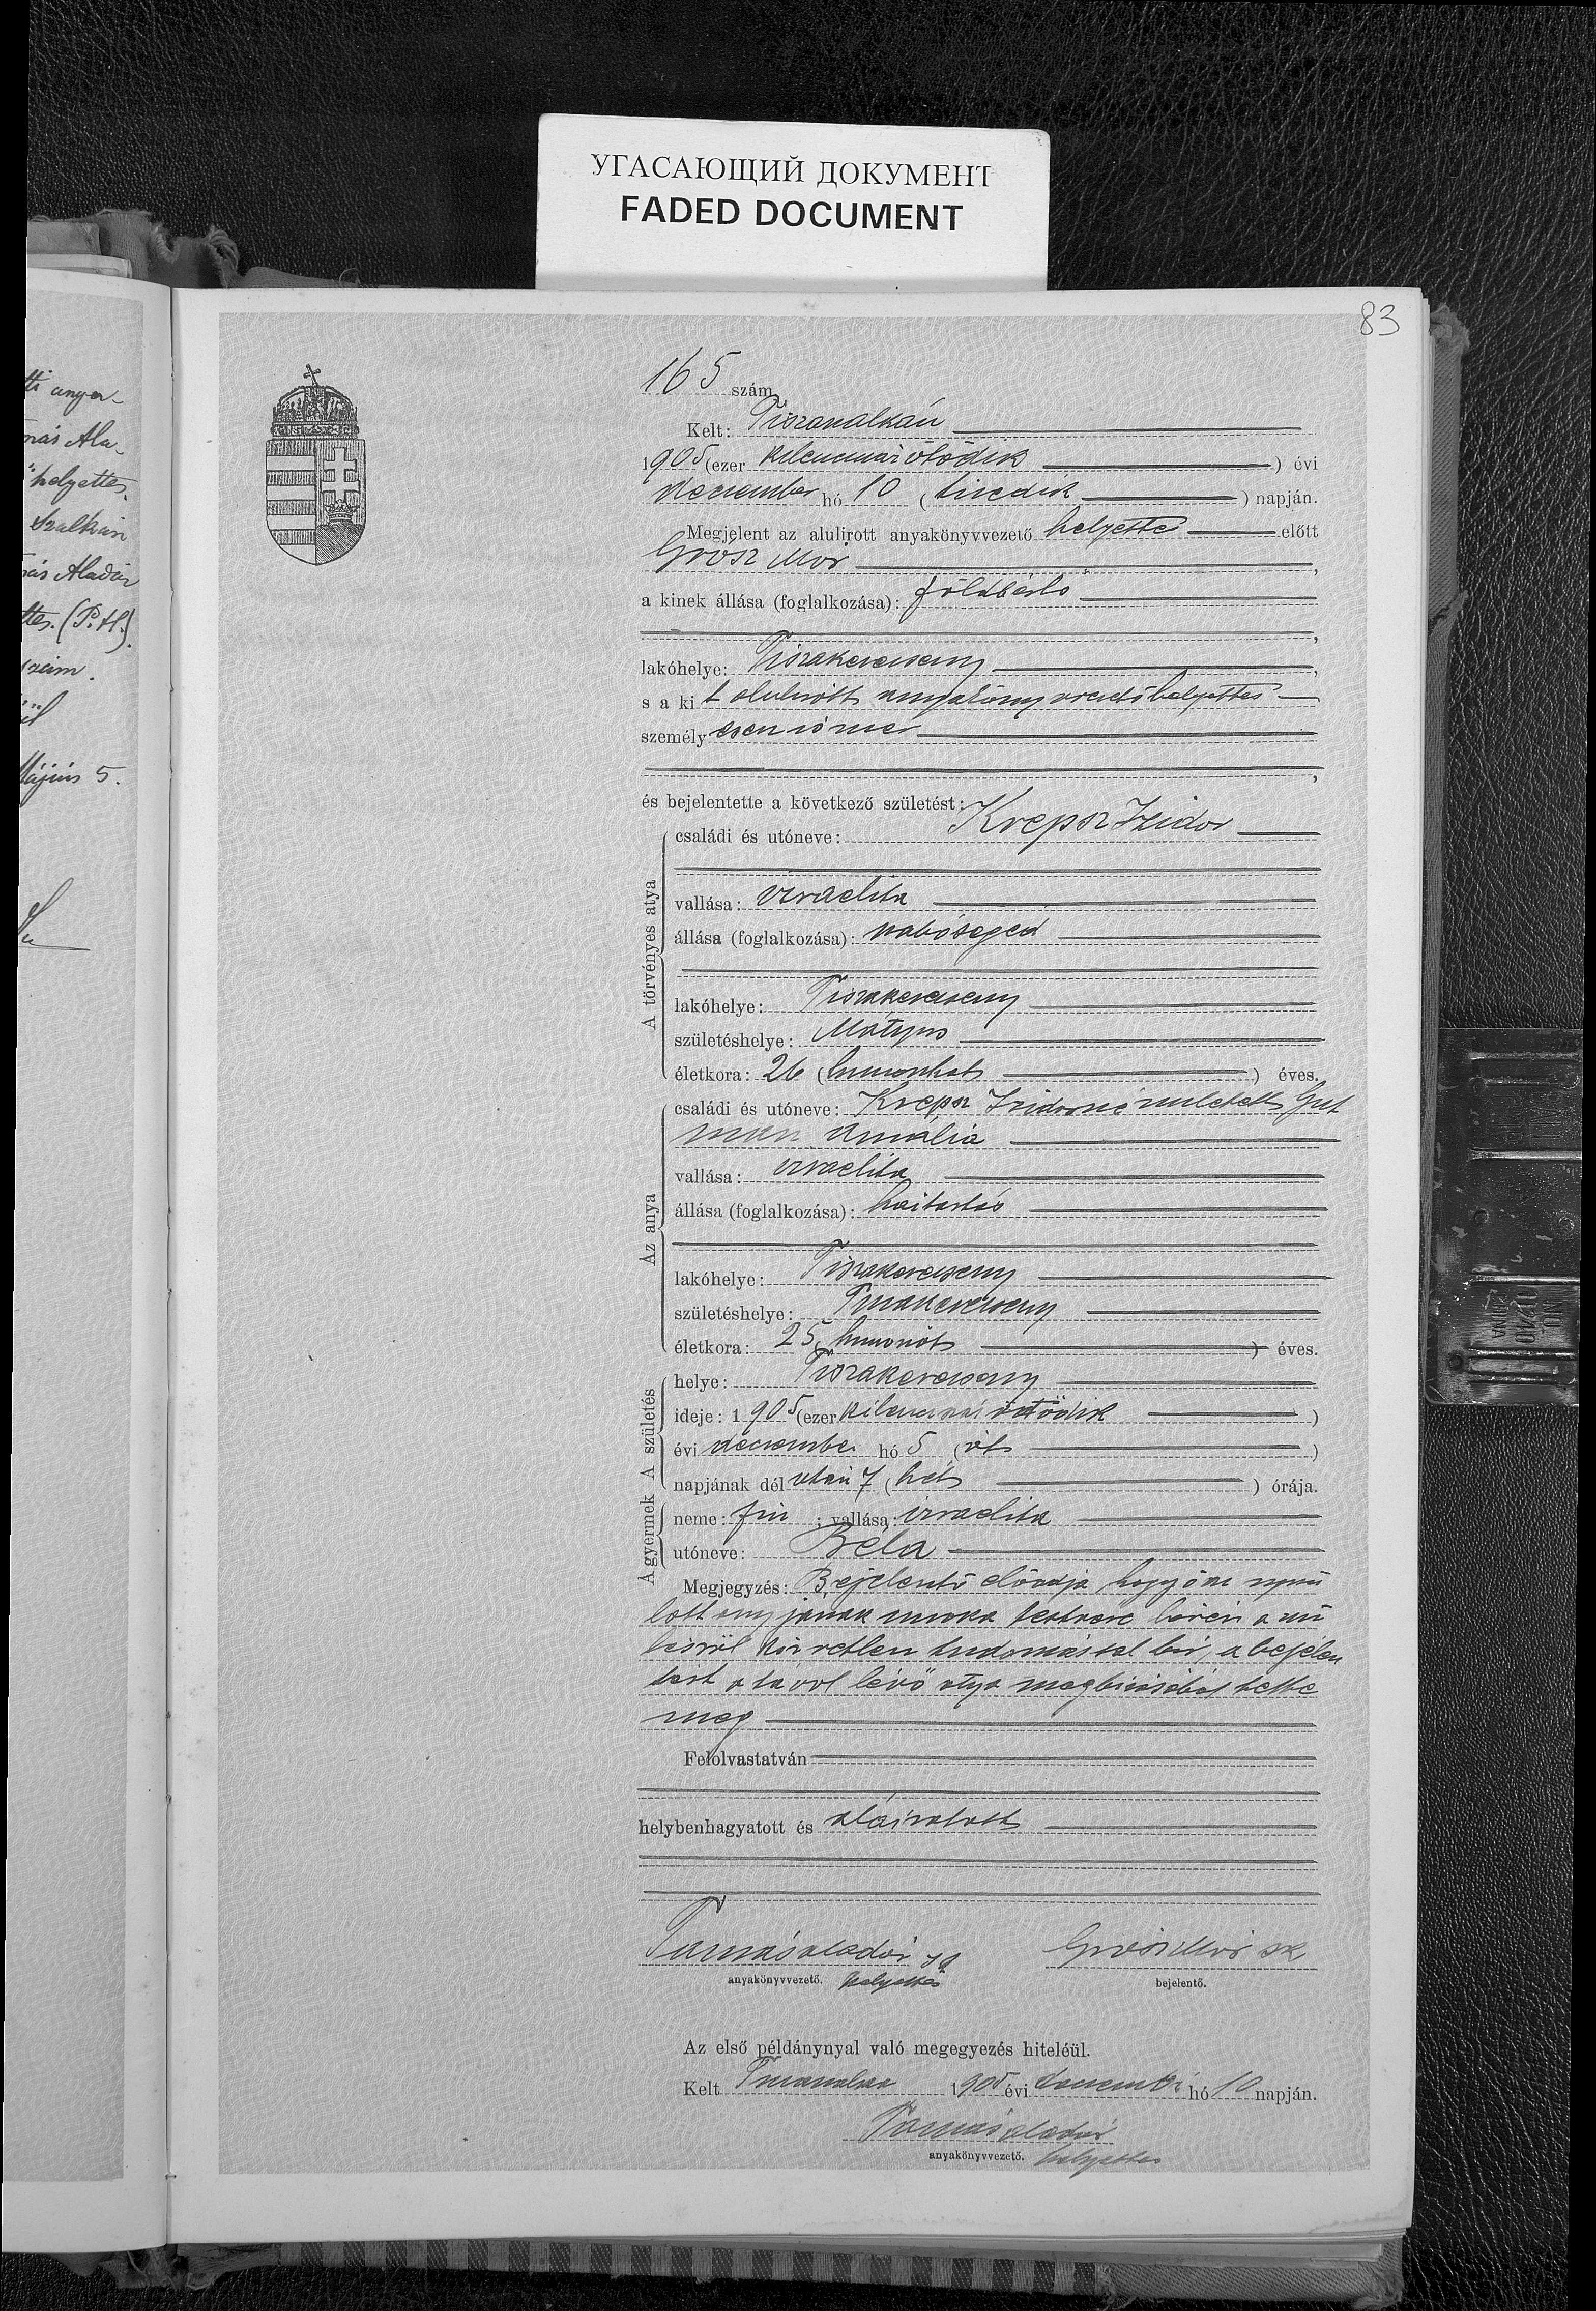 УГАСАЮЩИЙ ДОКУМЕНТ
FADED DOCUMENT
83
165 szám
Kelt: Tiszaszalkán
1905 (ezer kilenczszázötödik) évi
deczember hó 10 (tizedik) napján.
Megjelent az alulirott anyakönyvvezető helyettes előtt
Grósz Mór,
a kinek állása (foglalkozása): földbérlő
lakóhelye: Tiszakerecseny
s a kit alulirott anyakönyvvezető helyettes
személyesen ismer
és bejelentette a következő születést:
A törvényes atya
családi és utóneve: Krepsz Izidor
vallása: izraelita
állása (foglalkozása): szabósegéd
lakóhelye: Tiszakerecseny
születéshelye: Mátyus
életkora: 26 (huszonhat) éves.
Az anya
családi és utóneve: Krepsz Izidorné született Gut
man Amália
vallása: izraelita
állása (foglalkozása): háztartás
lakóhelye: Tiszakerecseny
születéshelye: Tiszakerecseny
életkora: 25 (huszonöt) éves.
A születés
helye: Tiszakerecseny
ideje: 1905 (ezer kilenczszáz ötödik)
évi deczember hó 5 (öt)
napjának dél után 7 (hét) órája.
A gyermek
neme: fiu; vallása: izraelita
utóneve: Béla
Megjegyzés: Bejelentő előadja hogy
lott anyjának
közvetlen tudomással bir, a bejelen
tést a távol lévő atya megbizásából tette
meg
Felolvastatván
helybenhagyatott és aláiratott
Tamás Aladár
Grósz Mór sk
anyakönyvvezető. helyettes
bejelentő.
Az első példánynyal való megegyezés hiteléül.
Kelt Tiszaszalka 1905 évi deczember hó 10 napján.
Tamás Aladár
anyakönyvvezető. helyettes
más Ala-
helyettes.
Szalkán
más Aladár
ttes. (P.H.)
Május 5.